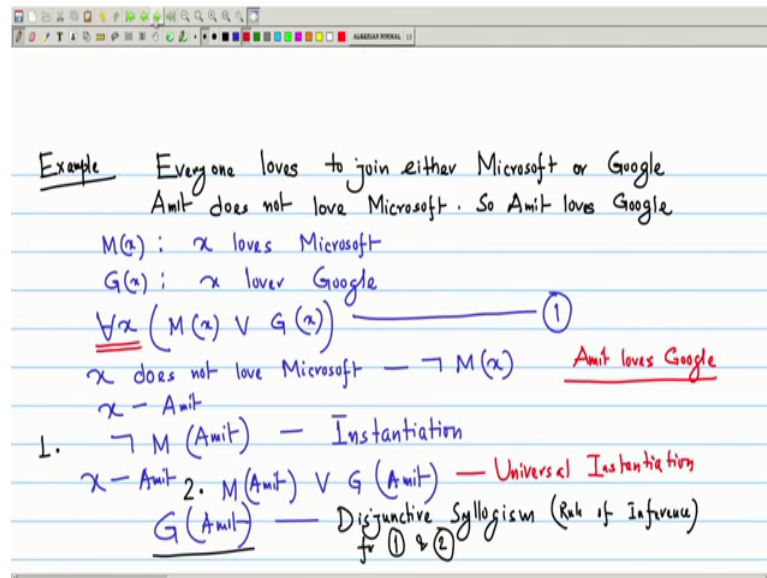 ALGERIAN NORMAL 13
Example Everyone loves to join either Microsoft or Google
Amit does not love Microsoft. So Amit loves Google
M(x) : x loves Microsoft
G(x) : x lover Google
∀x (M(x) V G(x)) ——— ①
x does not love Microsoft — ¬ M(x) Amit loves Google
x – Amit
1. ¬ M (Amit) — Instantiation
x – Amit 2. M(Amit) V G (Amit) — Universal Instantiation
G(Amit) — Disjunctive Syllogism (Rule of Inference)
fr ① & ②